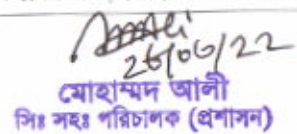 26/06/22
মোহাম্মদ আলী
সিঃ সহঃ পরিচালক (প্রশাসন)